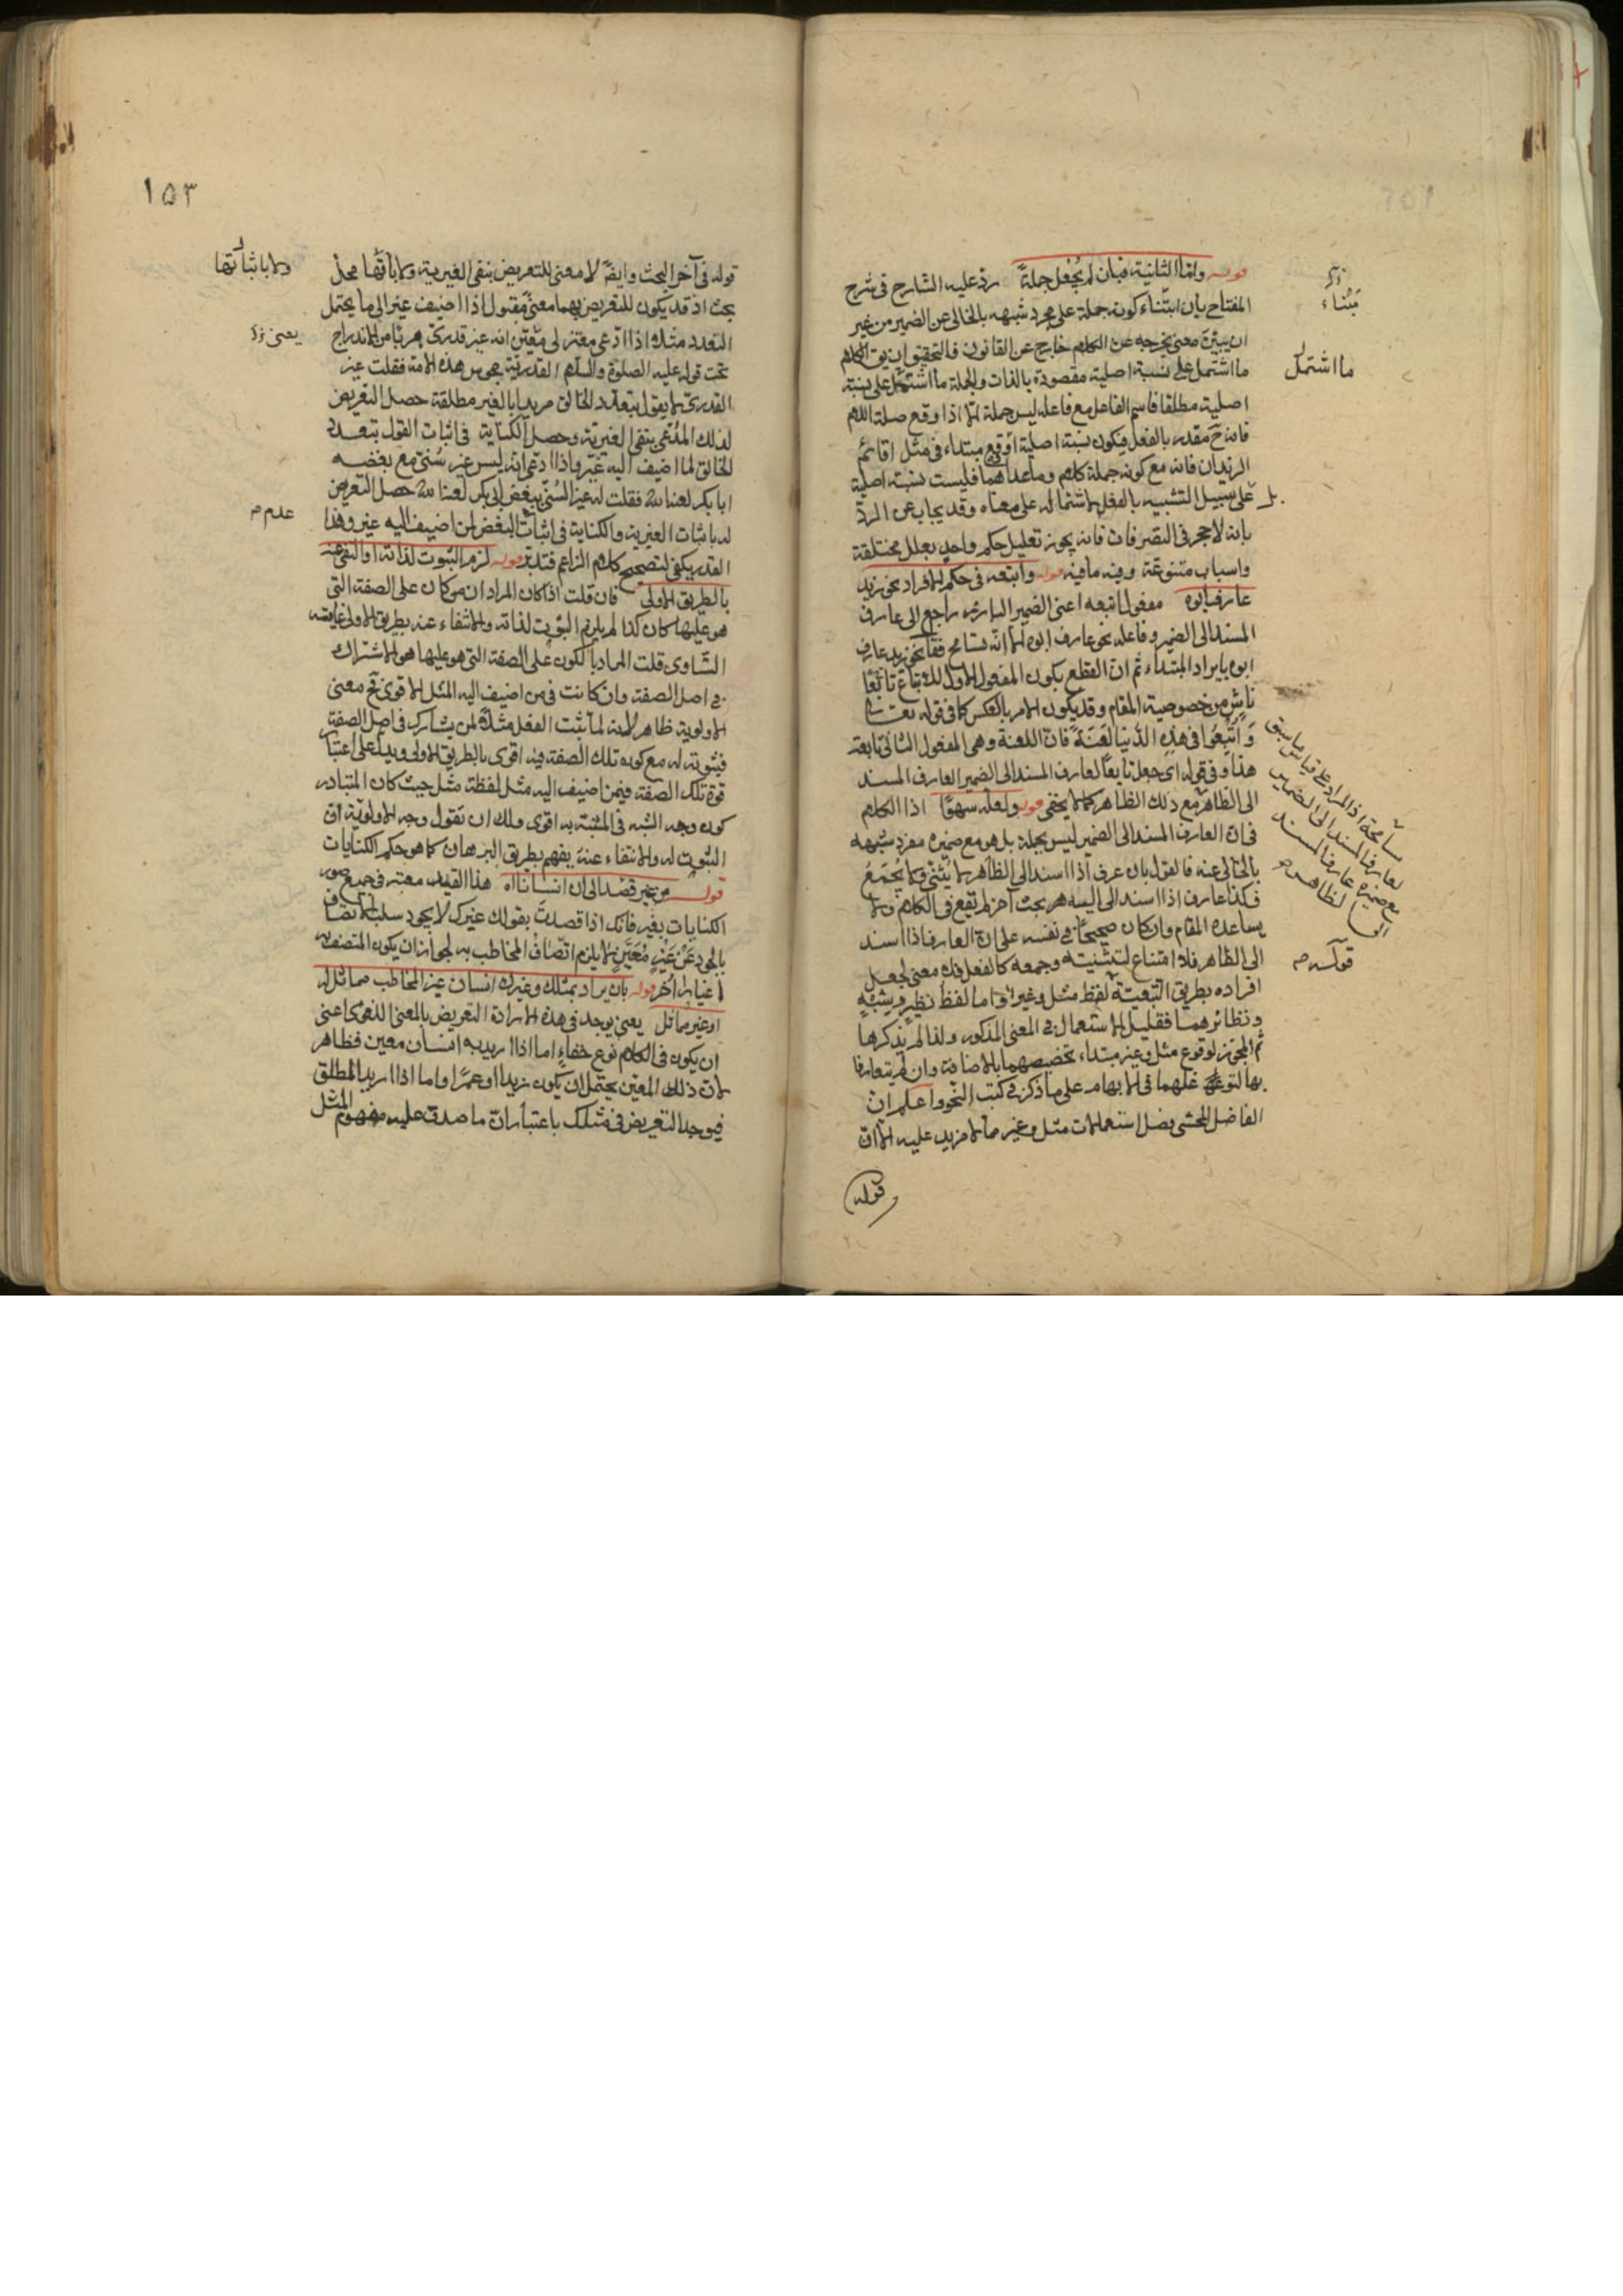 قوله واما الثانية فبان لم يجعل جملة رد عليه الشارح في شرح
المفتاح بان ابتناء كونه جملة على مجرد شبهه بالخالي عن الضمير من غير
ان يبين معنى يخرجه عن الكلام خارج عن القانون فالتحقيق ان يق الكلام
ما اشتمل على نسبة اصلية مقصودة بالذات والجملة ما اشتمل على نسبة
اصلية مطلقا فاسم الفاعل مع فاعله ليس جملة الا اذا وقع صلة اللام
فانه ح مقدر بالفعل فيكون نسبته اصلية او وقع مبتداء في مثل اقائم
الزيدان فانه مع كونه جملة كلام وما عداهما فليست نسبته اصلية
بل على سبيل التشبيه بالفعل لاشتماله على معناه وقد يجاب عن الرد
بانه لا حجر في التصرفات فانه يجوز تعليل حكم واحد بعلل مختلفة
واسباب متنوعة وفيه ما فيه قوله واتبعه في حكم الافراد نحو زيد
عارف ابوه مفعول اتبعه اعنى الضمير البارز راجع الى عارف
المسند الى الضمير وفاعله نحو عارف ابوه الا انه تسامح فقال نحو زيد عارف
ابوه بايراد المبتداء ثم ان القطع بكون المفعول الاول للاتباع تابعا
ناش من خصوصية المقام وقد يكون الامر بالعكس كما في قوله تعالى
وَاُتْبِعُوا في هذه الدنيا لَعْنَةً فان اللعنة وهى المفعول الثاني تابعة
هذا وفي قوله اى جعل تابعا لعارف المسند الى الضمير العارف المسند
الى الظاهر مع ذلك الظاهر كما لا يخفى قوله ولعله سهو اذا الكلام
في ان العارف المسند الى الضمير ليس بجملة بل هو مع ضميره مفرد شبهه
بالخالي عنه فالقول بان عرف اذا اسند الى الظاهر لا يُثنّى ولا يُجْمَعُ
فكذا عارف اذا اسند اليه بحث آخر لم تقع في الكلام ولا
يساعده المقام وان كان صحيحا في نفسه على ان العارف اذا اسند
الى الظاهر فلا امتناع لتثنيته وجمعه كالفعل فلا معنى لجعل
افراده بطريق التبعية لفظ مثل وغير واما لفظ نظير وشبه
ونظائرهما فقليل الاستعمال في المعنى المذكور ولذا لم يذكرها
ثم المجوز لوقوع مثل وغير مبتداء تخصيصهما بالاضافة وان لم يتعارفا
بها لتوغلهما في الابهام على ما ذكر في كتب النحو واعلم ان
الفاضل المحشى فصل استعمالات مثل وغير بما لا مزيد عليه الا ان
قوله
ابتناء
ما اشتمل
مسامحة اذ المراد على قياس ما سبق
لعارف المسند الى الضمير
مع ضميره عارف المسند
الى الظاهر
قوله
١٥٣
قوله في آخر البحث وايضا لا معنى للتعريض بنفى الغيرية ولا باثباتها محل
بحث اذ قد يكون للتعريض بهما معنى مقبول اذا اضيف غير الى ما يحتمل
التعدد مثلا اذا ادعى معتزلى معين انه غير قدرى هربا من الاندراج
تحت قوله عليه الصلوة والسلام القدرية مجوس هذه الامة فقلت غير
القدرى لا يقول بتعدد الخالق مريدا بالغير مطلقه حصل التعريض
لذلك المدعى بنفى الغيرية وحصل الكناية في اثبات القول بتعدد
الخالق لما اضيف اليه غير واذا ادعى انه ليس غير سُنّي مع بغضه
ابا بكر فقلت له غير السنى يبغض ابا بكر حصل التعريض
له باثبات الغيرية والكناية في اثبات البغض لمن اضيف اليه غير وهذا
القدر يكفى لتصحيح كلام الزاعم فتدبر قوله لزم الثبوت لذاته او النفى عنه
بالطريق الاولى فان قلت اذا كان المراد ان من كان على الصفة التى
هو عليها كان كذا لم يلزم الثبوت لذاته والانتفاء عنه بطريق الاولى غايته
التساوى قلت المراد بالكون على الصفة التى هو عليها هو الاشتراك
في اصل الصفة وان كانت في من اضيف اليه المثل الاقوى فح معنى
الاولوية ظاهر لانه لما ثبت الفعل مثلا لمن يشارك في اصل الصفة
فثبوته له مع كون تلك الصفة فيه اقوى بالطريق الاولى ويدل على اعتبار
قوة تلك الصفة فيمن اضيف اليه مثل لفظة مثل حيث كان المتبادر
كون وجه الشبه في المشبه به اقوى ولك ان تقول وجه الاولوية ان
الثبوت له والانتفاء عنه يفهم بطريق البرهان كما هو حكم الكنايات
قوله من غير قصد الى ان انسانا اه هذا القيد معتبر في جميع صور
الكنايات بغير فانك اذا قصدت بقولك غيرك لا يجود سلب الاتصاف
بالجود عَنْ غَيْرٍ مُعَيَّنٍ لا يلزم اتصاف المخاطب به لجواز ان يكون المتصف به
اغيارا اُخَر قوله بان يراد بمثلك وغيرك انسان غير المخاطب مماثل له
او غير مماثل يعنى يوجد في هذه الارادة التعريض بالمعنى اللغوى اعنى
ان يكون في الكلام نوع خفاء اما اذا اريد به انسان معين فظاهر
لان ذلك المعين يحتمل ان يكون زيدا او عمرا واما اذا اريد المطلق
فيوجد التعريض في مثلك باعتبار ان ما صدق عليه مفهوم المثل
ولا باثباتها
يعنى
عدم